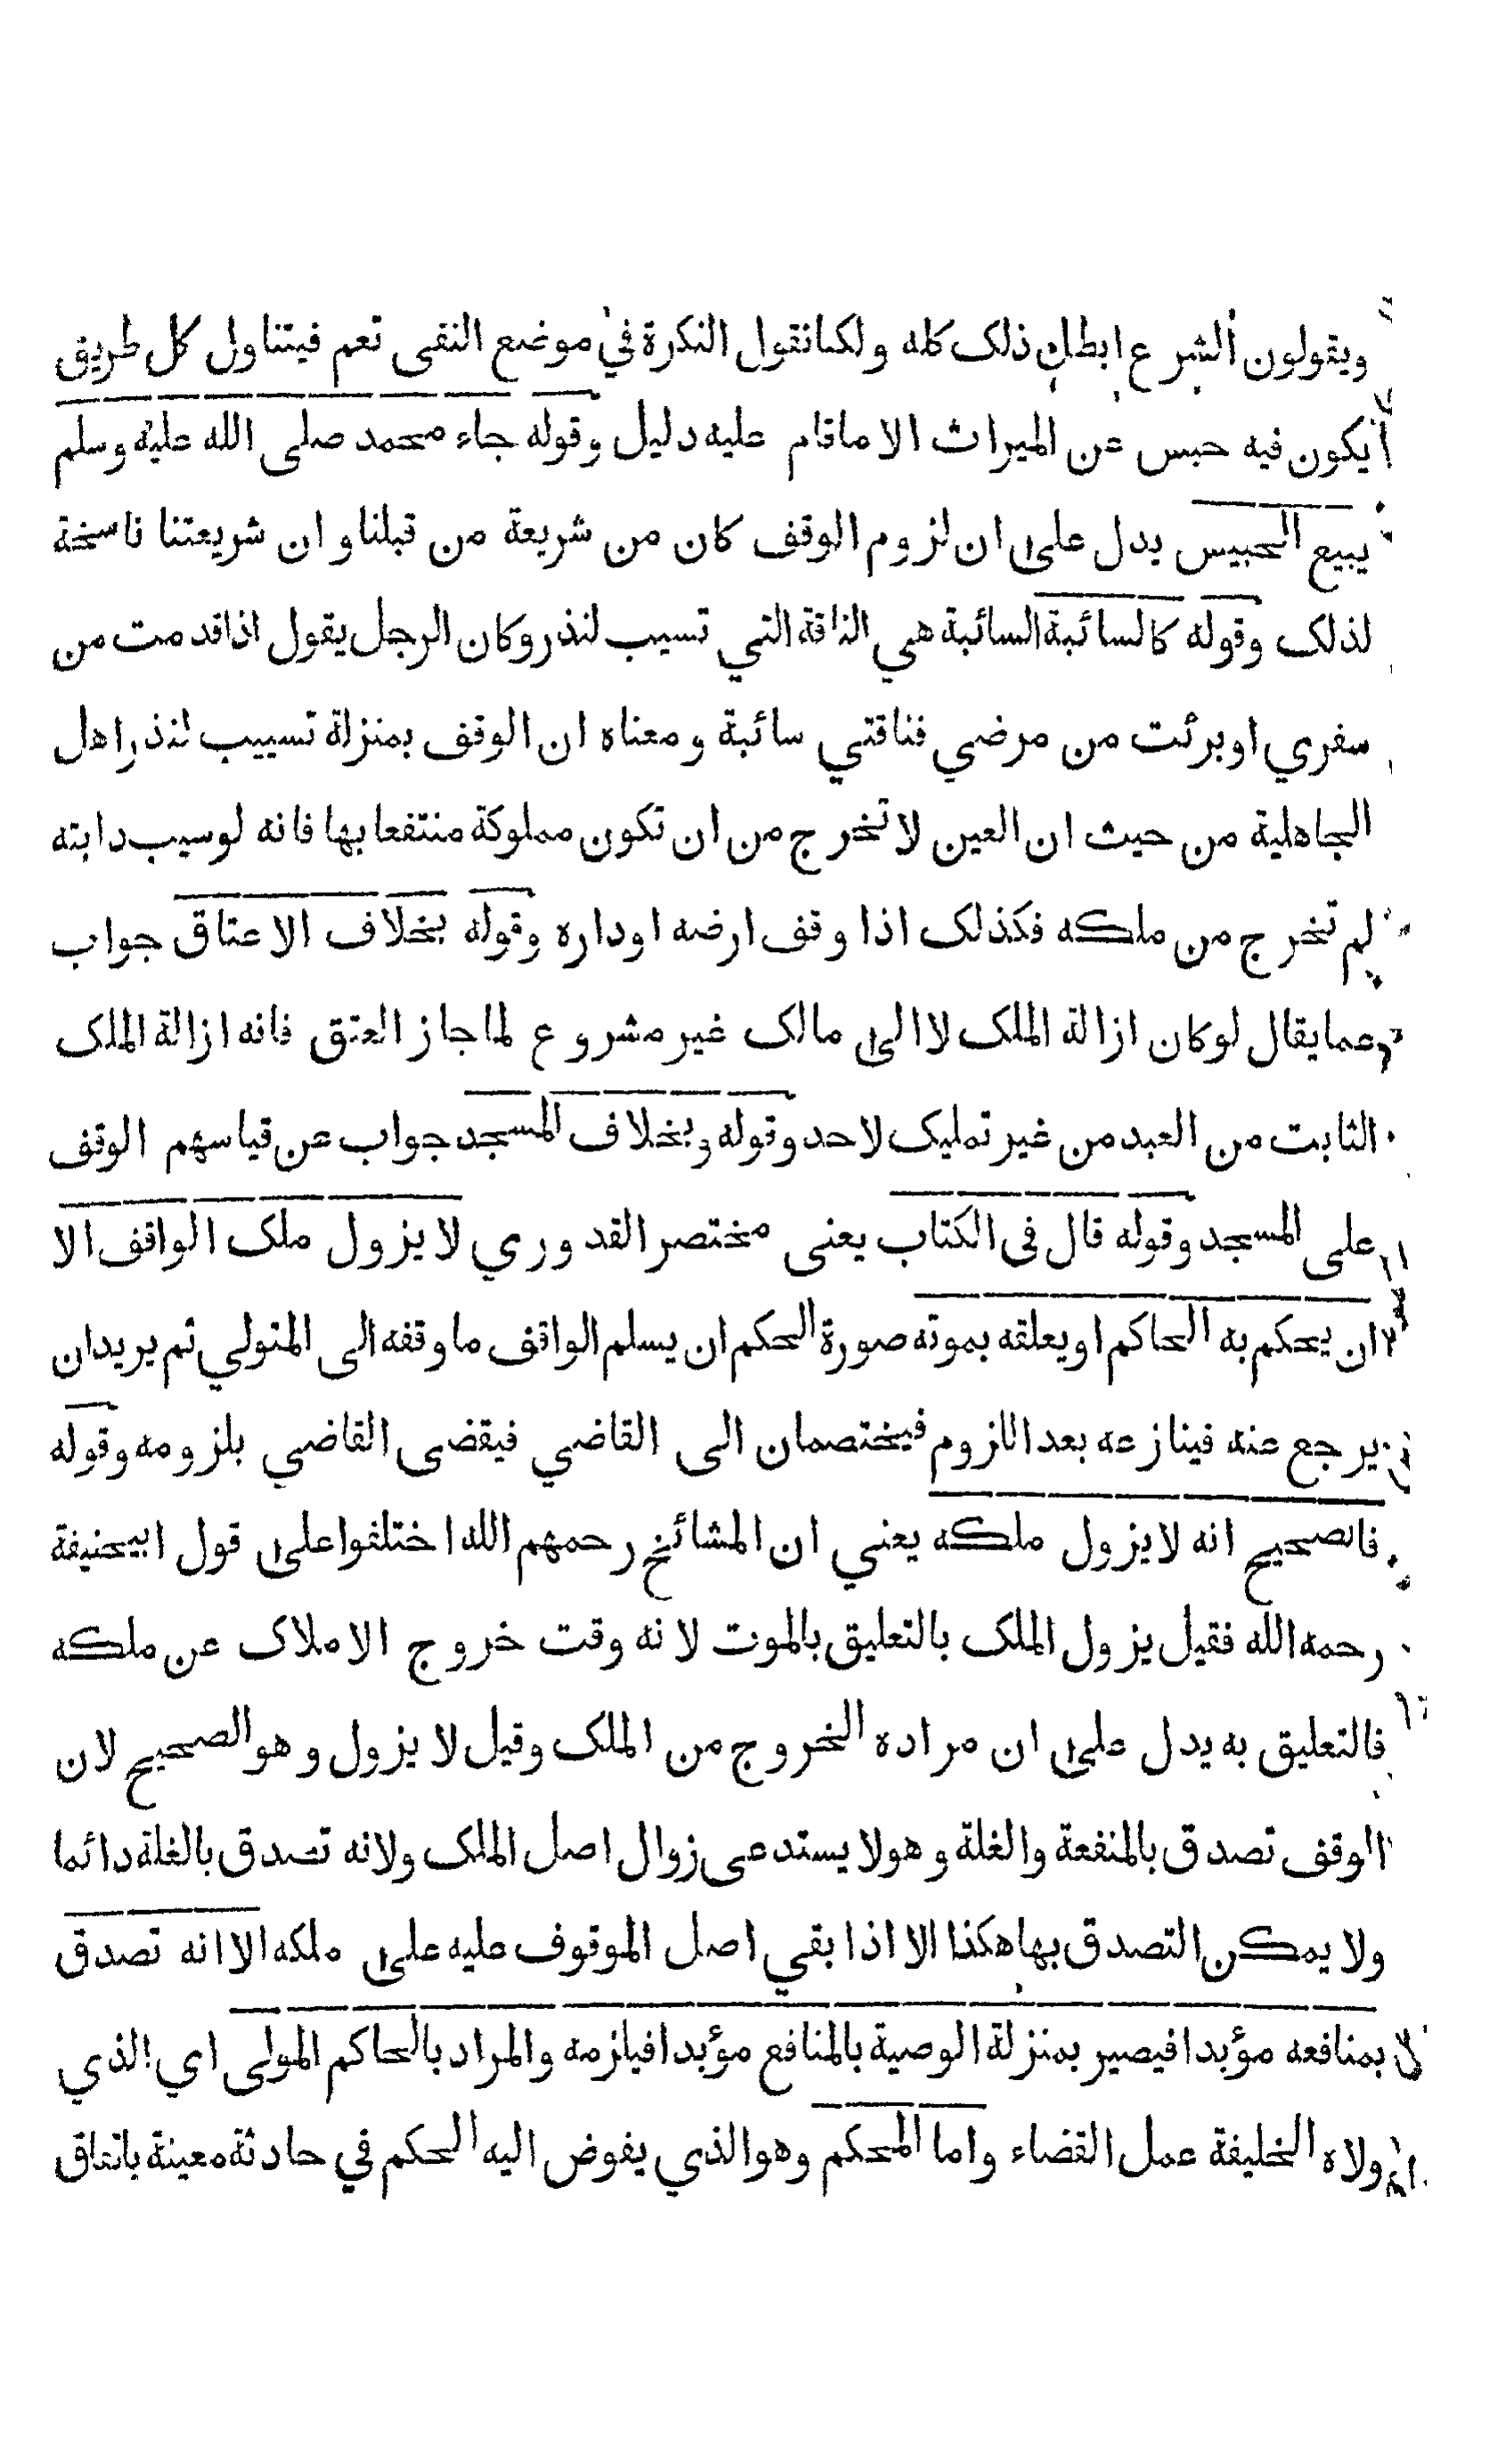 ويقولون الشرع ابطل ذلك كله ولكنا نقول النكرة في موضع النفى تعم فيتناول كل طريق
يكون فيه حبس عن الميراث الا ما قام عليه دليل وقوله جاء محمد صلى الله عليه وسلم
يبيع الحبيس يدل على ان لزوم الوقف كان من شريعة من قبلنا وان شريعتنا ناسخة
لذلك وقوله كالسائبة السائبة هي الناقة التي تسيب لنذر وكان الرجل يقول اذا قدمت من
سفري او برئت من مرضي فناقتي سائبة ومعناه ان الوقف بمنزلة تسييب لنذر اهل
الجاهلية من حيث ان العين لا تخرج من ان تكون مملوكة منتفعا بها فانه لو سيب دابته
لم تخرج من ملكه فكذلك اذا وقف ارضه او داره وقوله بخلاف الاعتاق جواب
عما يقال لو كان ازالة الملك لا الى مالك غير مشروع لما جاز العتق فانه ازالة الملك
الثابت من العبد من غير تمليك لاحد وقوله وبخلاف المسجد جواب عن قياسهم الوقف
على المسجد وقوله قال في الكتاب يعنى مختصر القدوري لا يزول ملك الواقف الا
ان يحكم به الحاكم او يعلقه بموته صورة الحكم ان يسلم الواقف ما وقفه الى المتولي ثم يريد ان
يرجع عنه فينازعه بعد اللزوم فيختصمان الى القاضي فيقضى القاضي بلزومه وقوله
فالصحيح انه لا يزول ملكه يعني ان المشائخ رحمهم الله اختلفوا على قول ابيحنيفة
رحمه الله فقيل يزول الملك بالتعليق بالموت لانه وقت خروج الاملاك عن ملكه
فالتعليق به يدل على ان مراده الخروج من الملك وقيل لا يزول وهو الصحيح لان
الوقف تصدق بالمنفعة والغلة وهو لا يستدعى زوال اصل الملك ولانه تصدق بالغلة دائما
ولا يمكن التصدق بها هكذا الا اذا بقي اصل الموقوف عليه على ملكه الا انه تصدق
بمنافعه مؤبدا فيصير بمنزلة الوصية بالمنافع مؤبدا فيلزمه والمراد بالحاكم المولى اي الذي
ولاه الخليفة عمل القضاء واما المحكم وهو الذي يفوض اليه الحكم في حادثة معينة باتفاق